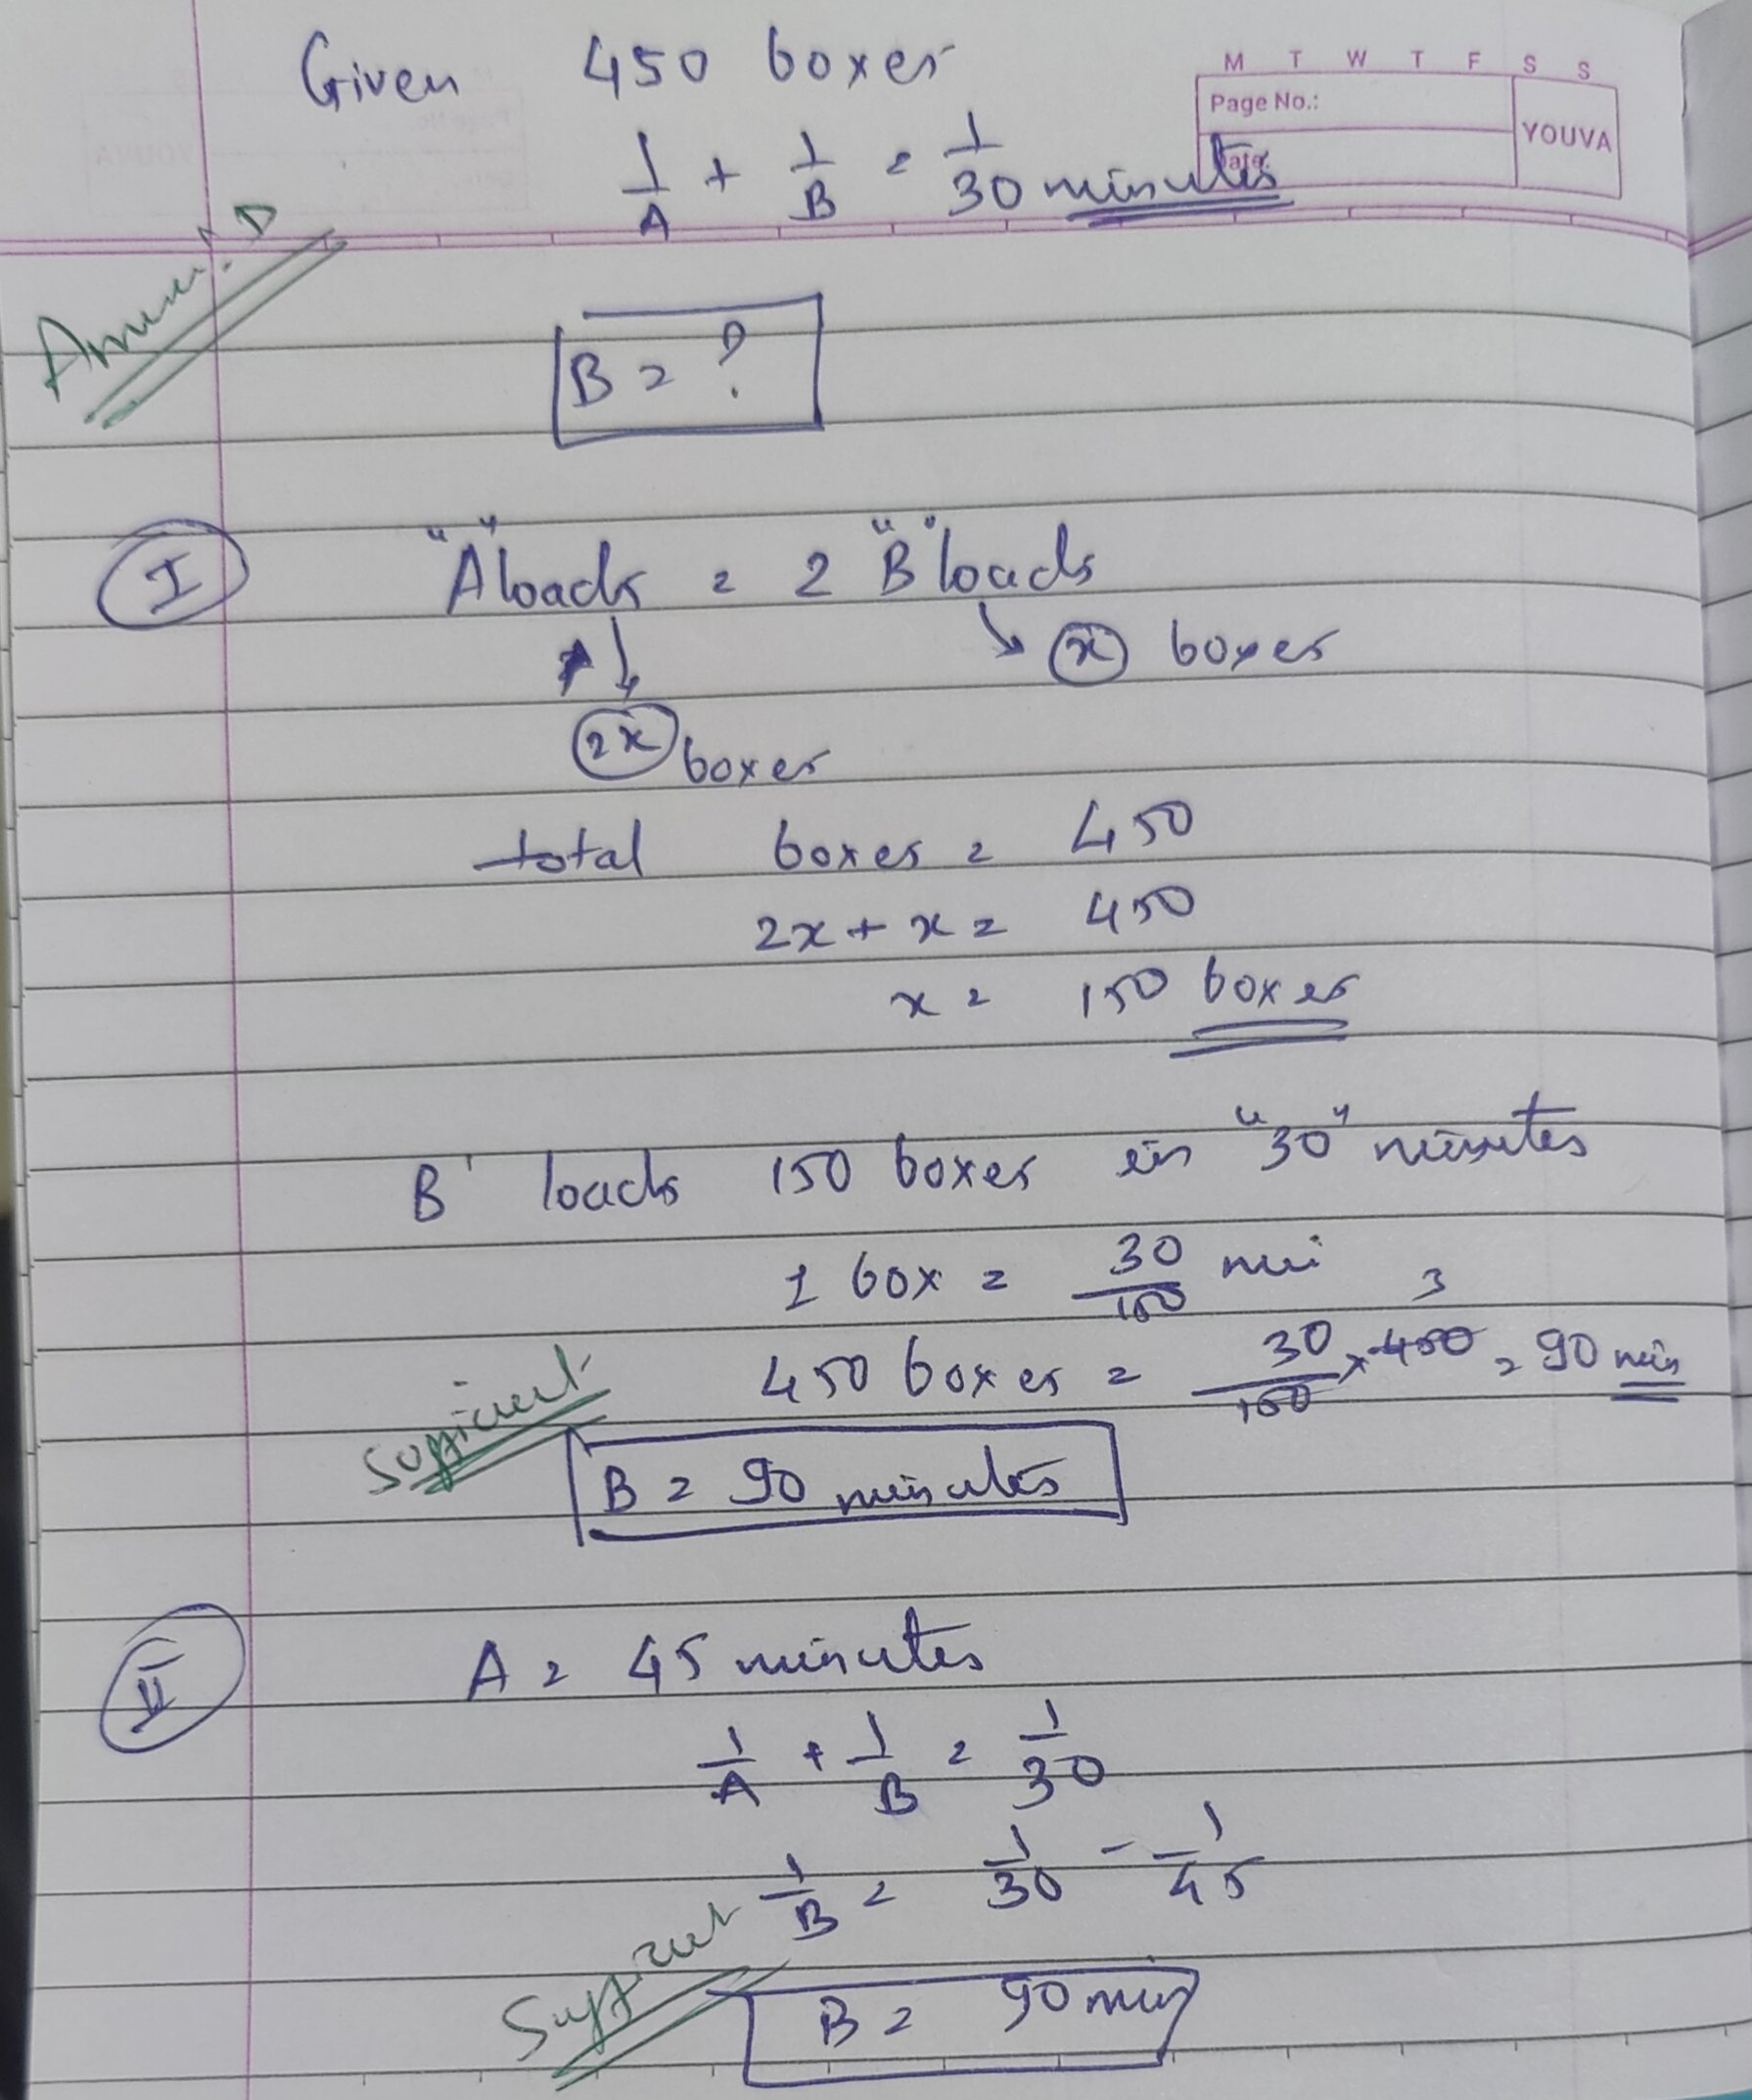 Given 450 boxes
M T W T F S S
Page No.:
YOUVA
Date:
1/A + 1/B = 1/30 minutes
Answer: D
B = ?
I
"A" loads = 2 "B" loads
x boxes
2x boxes
total boxes = 450
2x + x = 450
x = 150 boxes
B' loads 150 boxes in "30" minutes
1 box = 30/150 min
3
450 boxes = 30/150 × 450 = 90 min
Sufficient
B = 90 minutes
II
A = 45 minutes
1/A + 1/B = 1/30
1/B = 1/30 - 1/45
Sufficient
B = 90 min